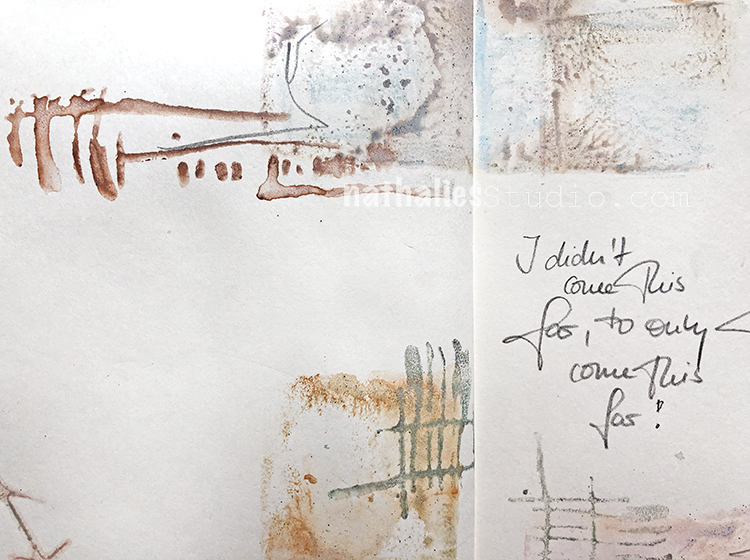 nathaliesstudio.com
I didn't
come this
far, to only
come this
far!